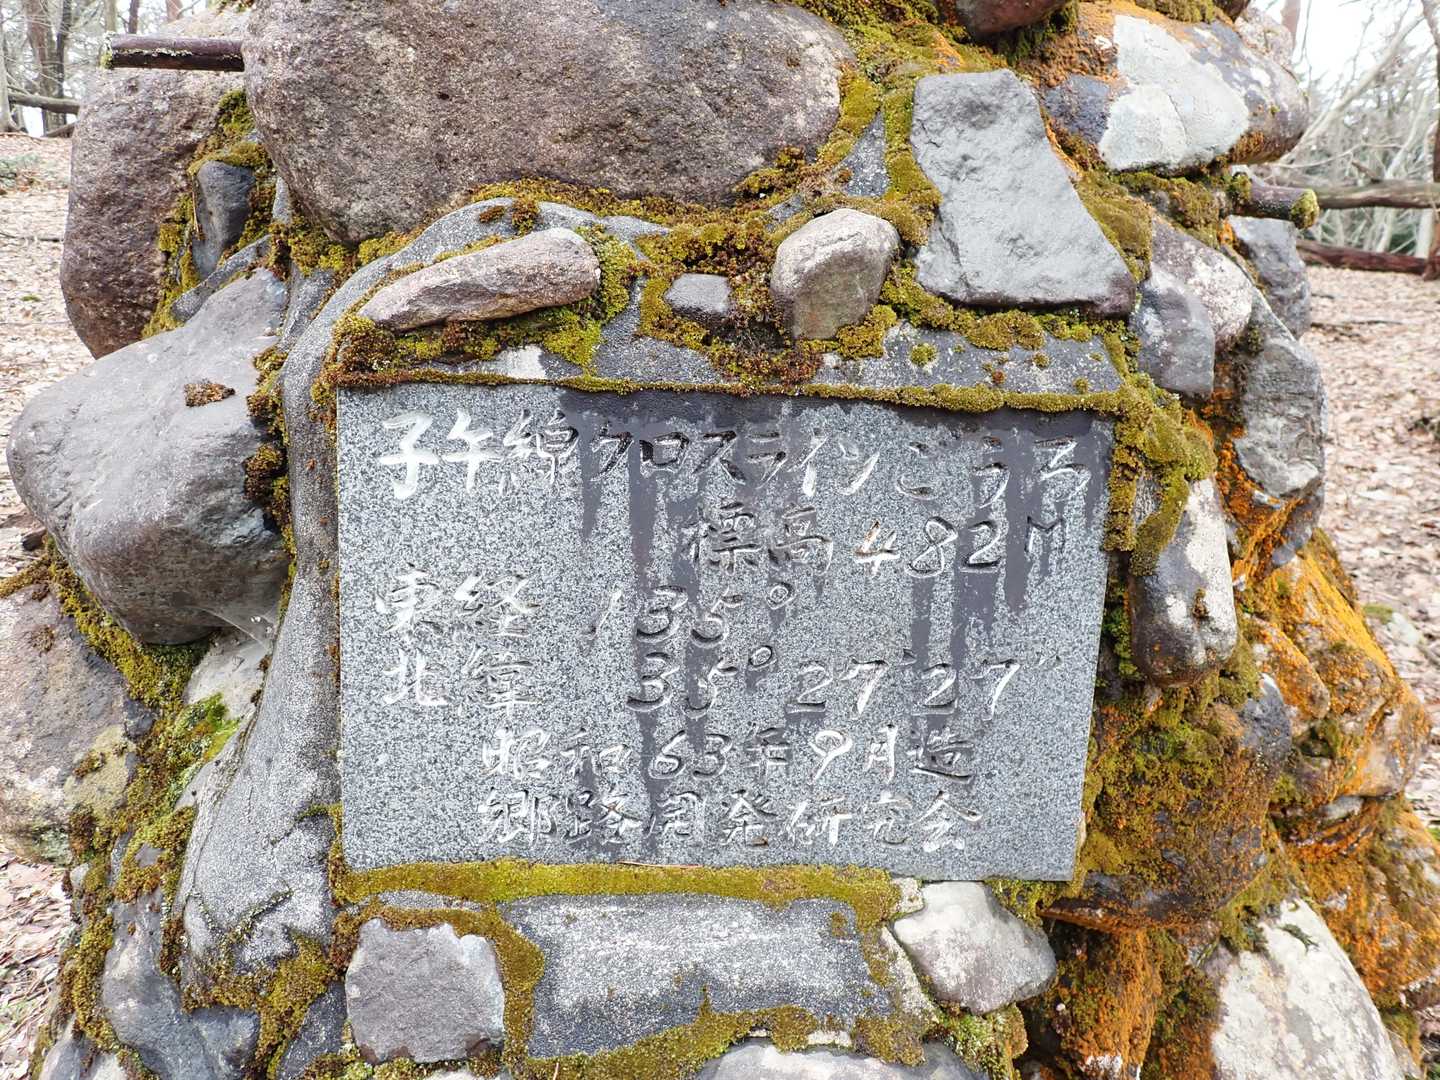 子午線クロスラインこうろ
標高482M
東経 135°
北緯 35°27′27″
昭和63年9月造
郷路開発研究会